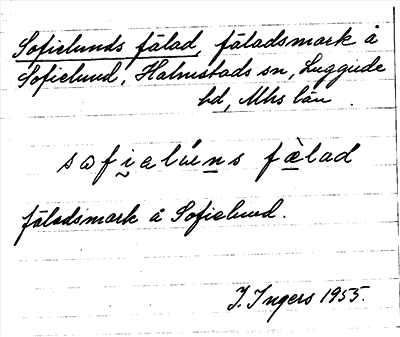 Sofielunds fälad, fäladsmark å
Sofielund, Halmstads sn, Luggude
hd, Mhs län.
sofielúns fælad
fäladsmark å Sofielund.
I. Ingers 1955.